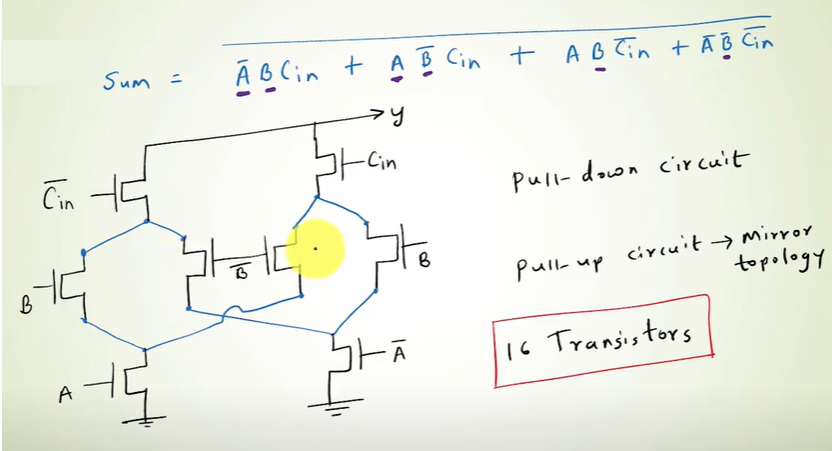 Sum = \overline{A̅ B Cin + A B̅ Cin + A B C̅in + A̅ B̅ C̅in}
y
Cin
C̅in
Pull-down circuit
B
B̅
B
Pull-up circuit → Mirror
topology
16 Transistors
A
A̅